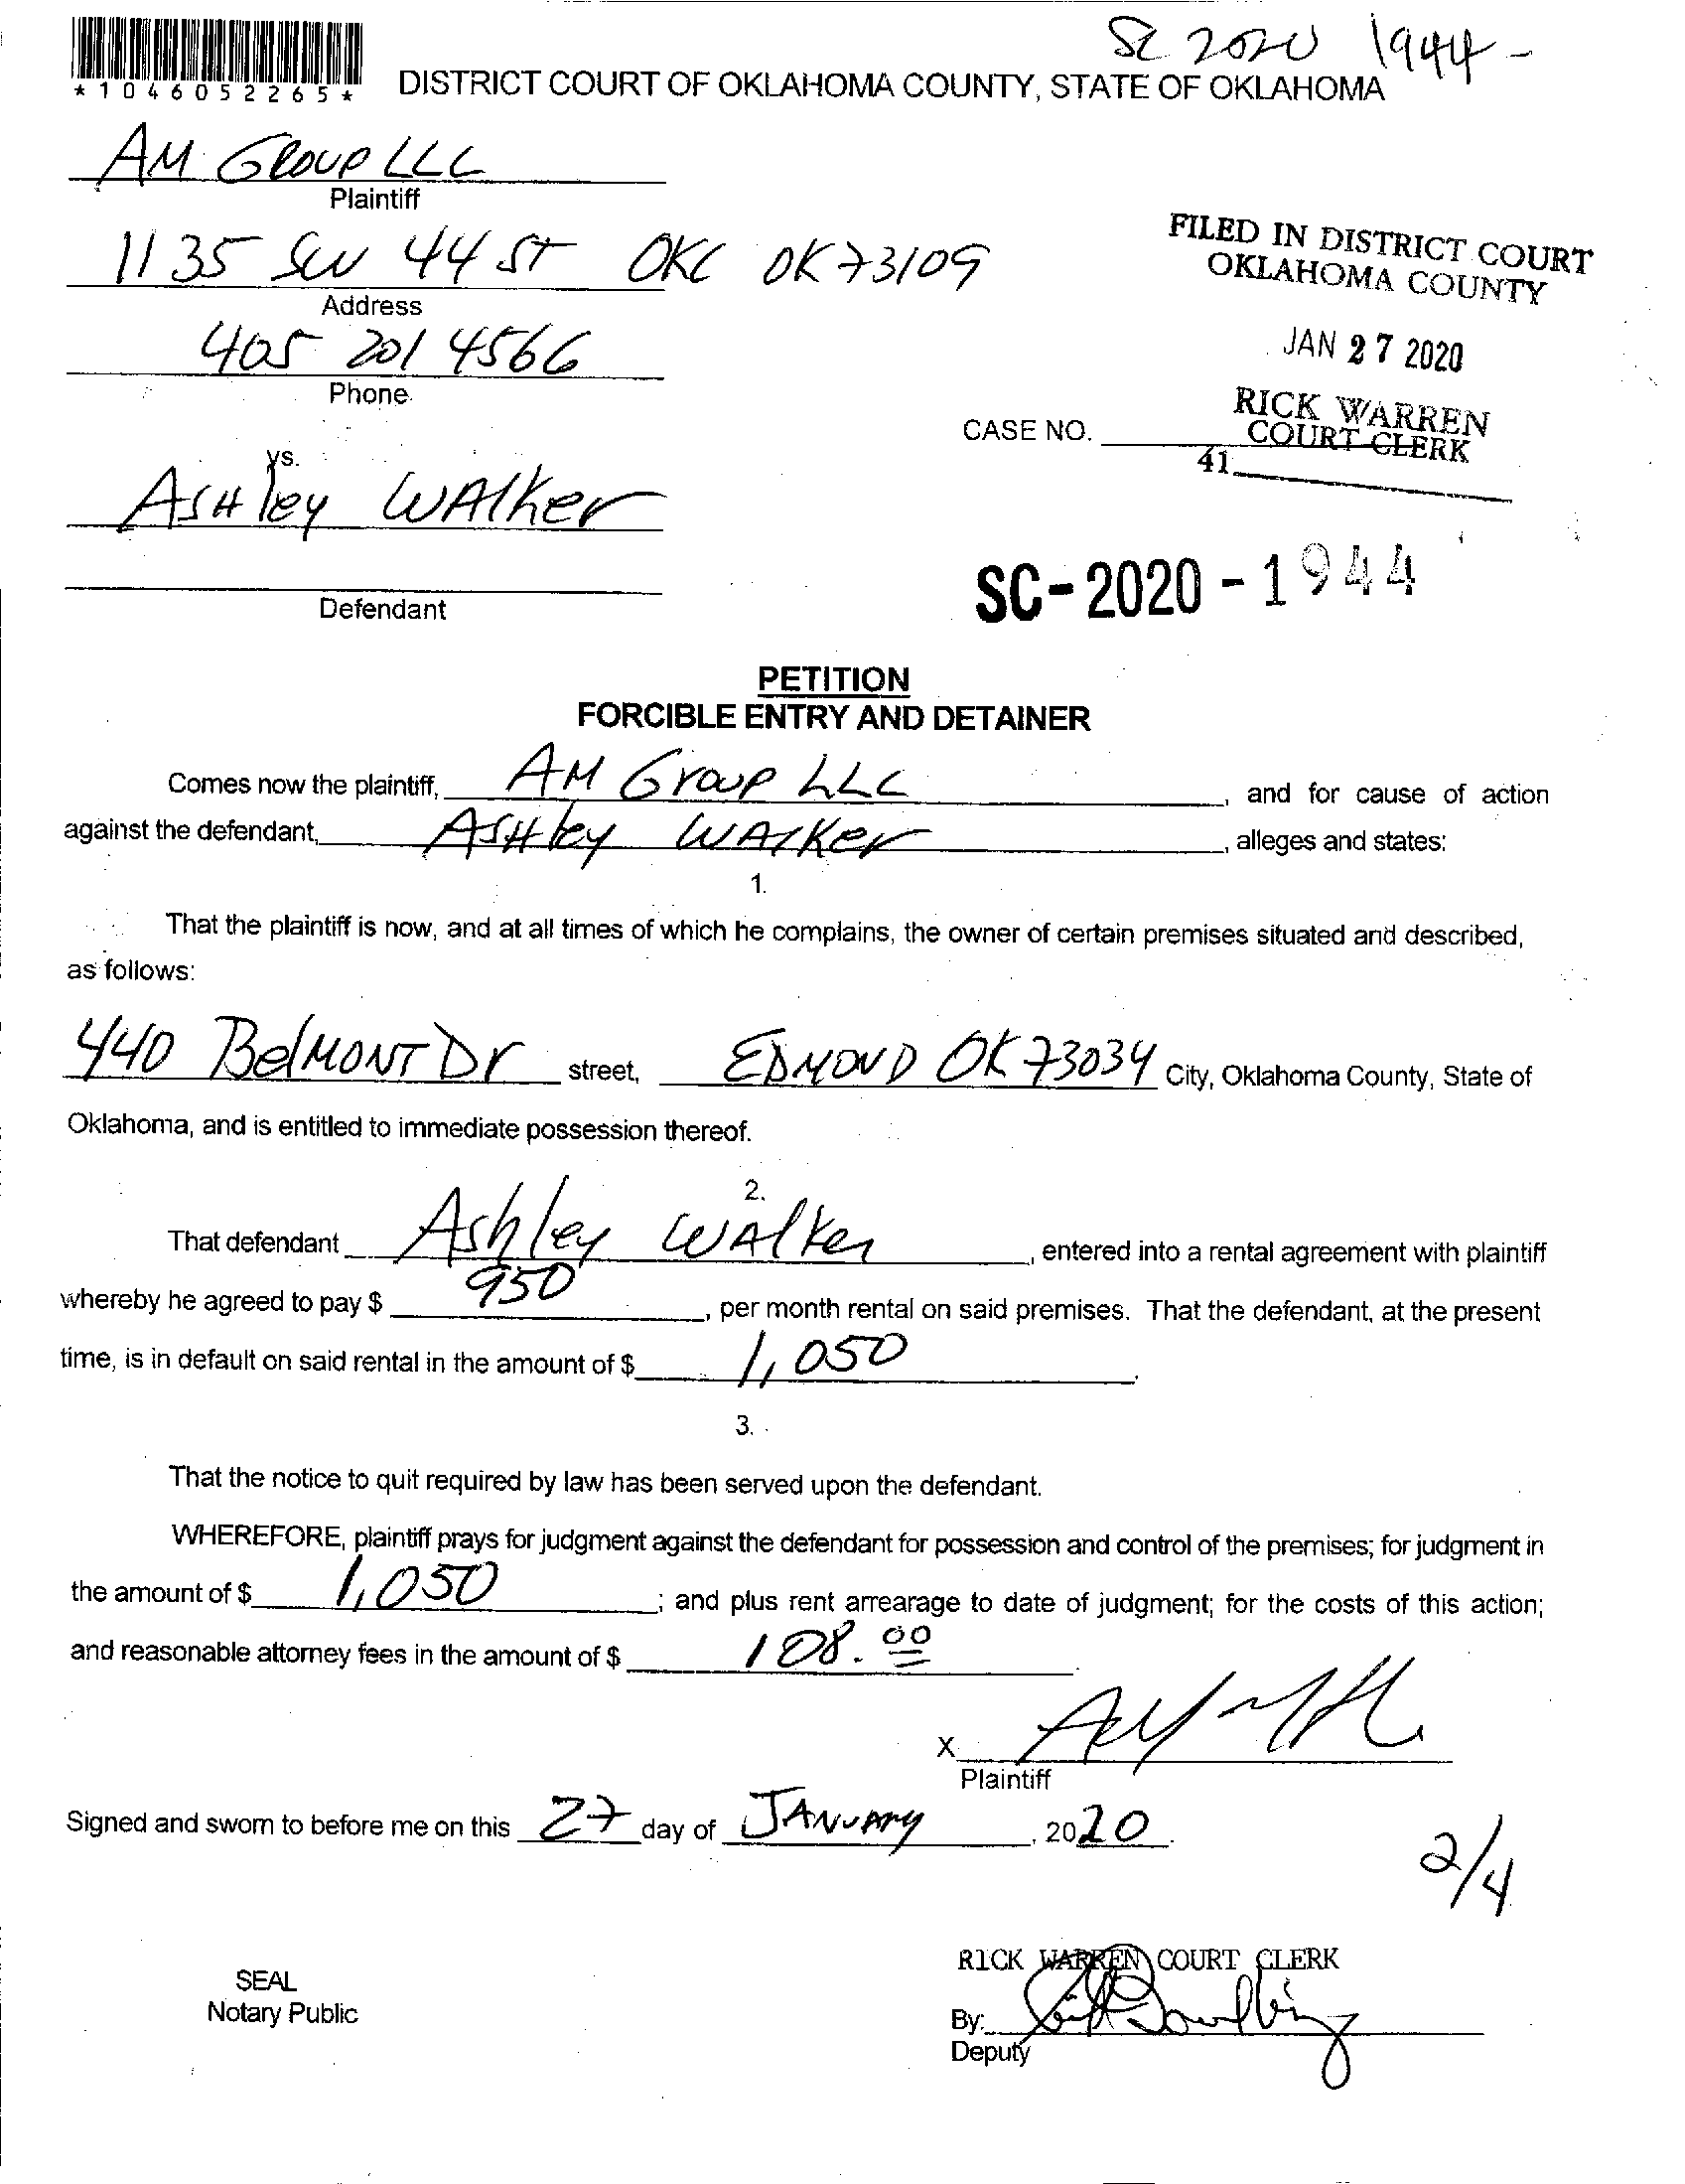 SC 2020 1944-
*1046052265*
DISTRICT COURT OF OKLAHOMA COUNTY, STATE OF OKLAHOMA
AM GROUP LLC
Plaintiff
1135 SW 44 ST OKC OK 73109
Address
405 201 4566
Phone
FILED IN DISTRICT COURT
OKLAHOMA COUNTY
JAN 27 2020
RICK WARREN
COURT CLERK
CASE NO.
41
vs.
ASHley WAlker
Defendant
SC-2020-1944
PETITION
FORCIBLE ENTRY AND DETAINER
Comes now the plaintiff, AM Group LLC, and for cause of action
against the defendant, ASHley WALKer, alleges and states:
1.
That the plaintiff is now, and at all times of which he complains, the owner of certain premises situated and described,
as follows:
440 BelMONT Dr street, EDMOND OK 73034 City, Oklahoma County, State of
Oklahoma, and is entitled to immediate possession thereof.
2.
That defendant Ashley WAlker, entered into a rental agreement with plaintiff
whereby he agreed to pay $ 950, per month rental on said premises. That the defendant, at the present
time, is in default on said rental in the amount of $ 1,050.
3.
That the notice to quit required by law has been served upon the defendant.
WHEREFORE, plaintiff prays for judgment against the defendant for possession and control of the premises; for judgment in
the amount of $ 1,050; and plus rent arrearage to date of judgment; for the costs of this action;
and reasonable attorney fees in the amount of $ 108.00.
X
Plaintiff
Signed and sworn to before me on this 27 day of JANUARY, 2020.
2/4
RICK WARREN COURT CLERK
SEAL
Notary Public
By:
Deputy